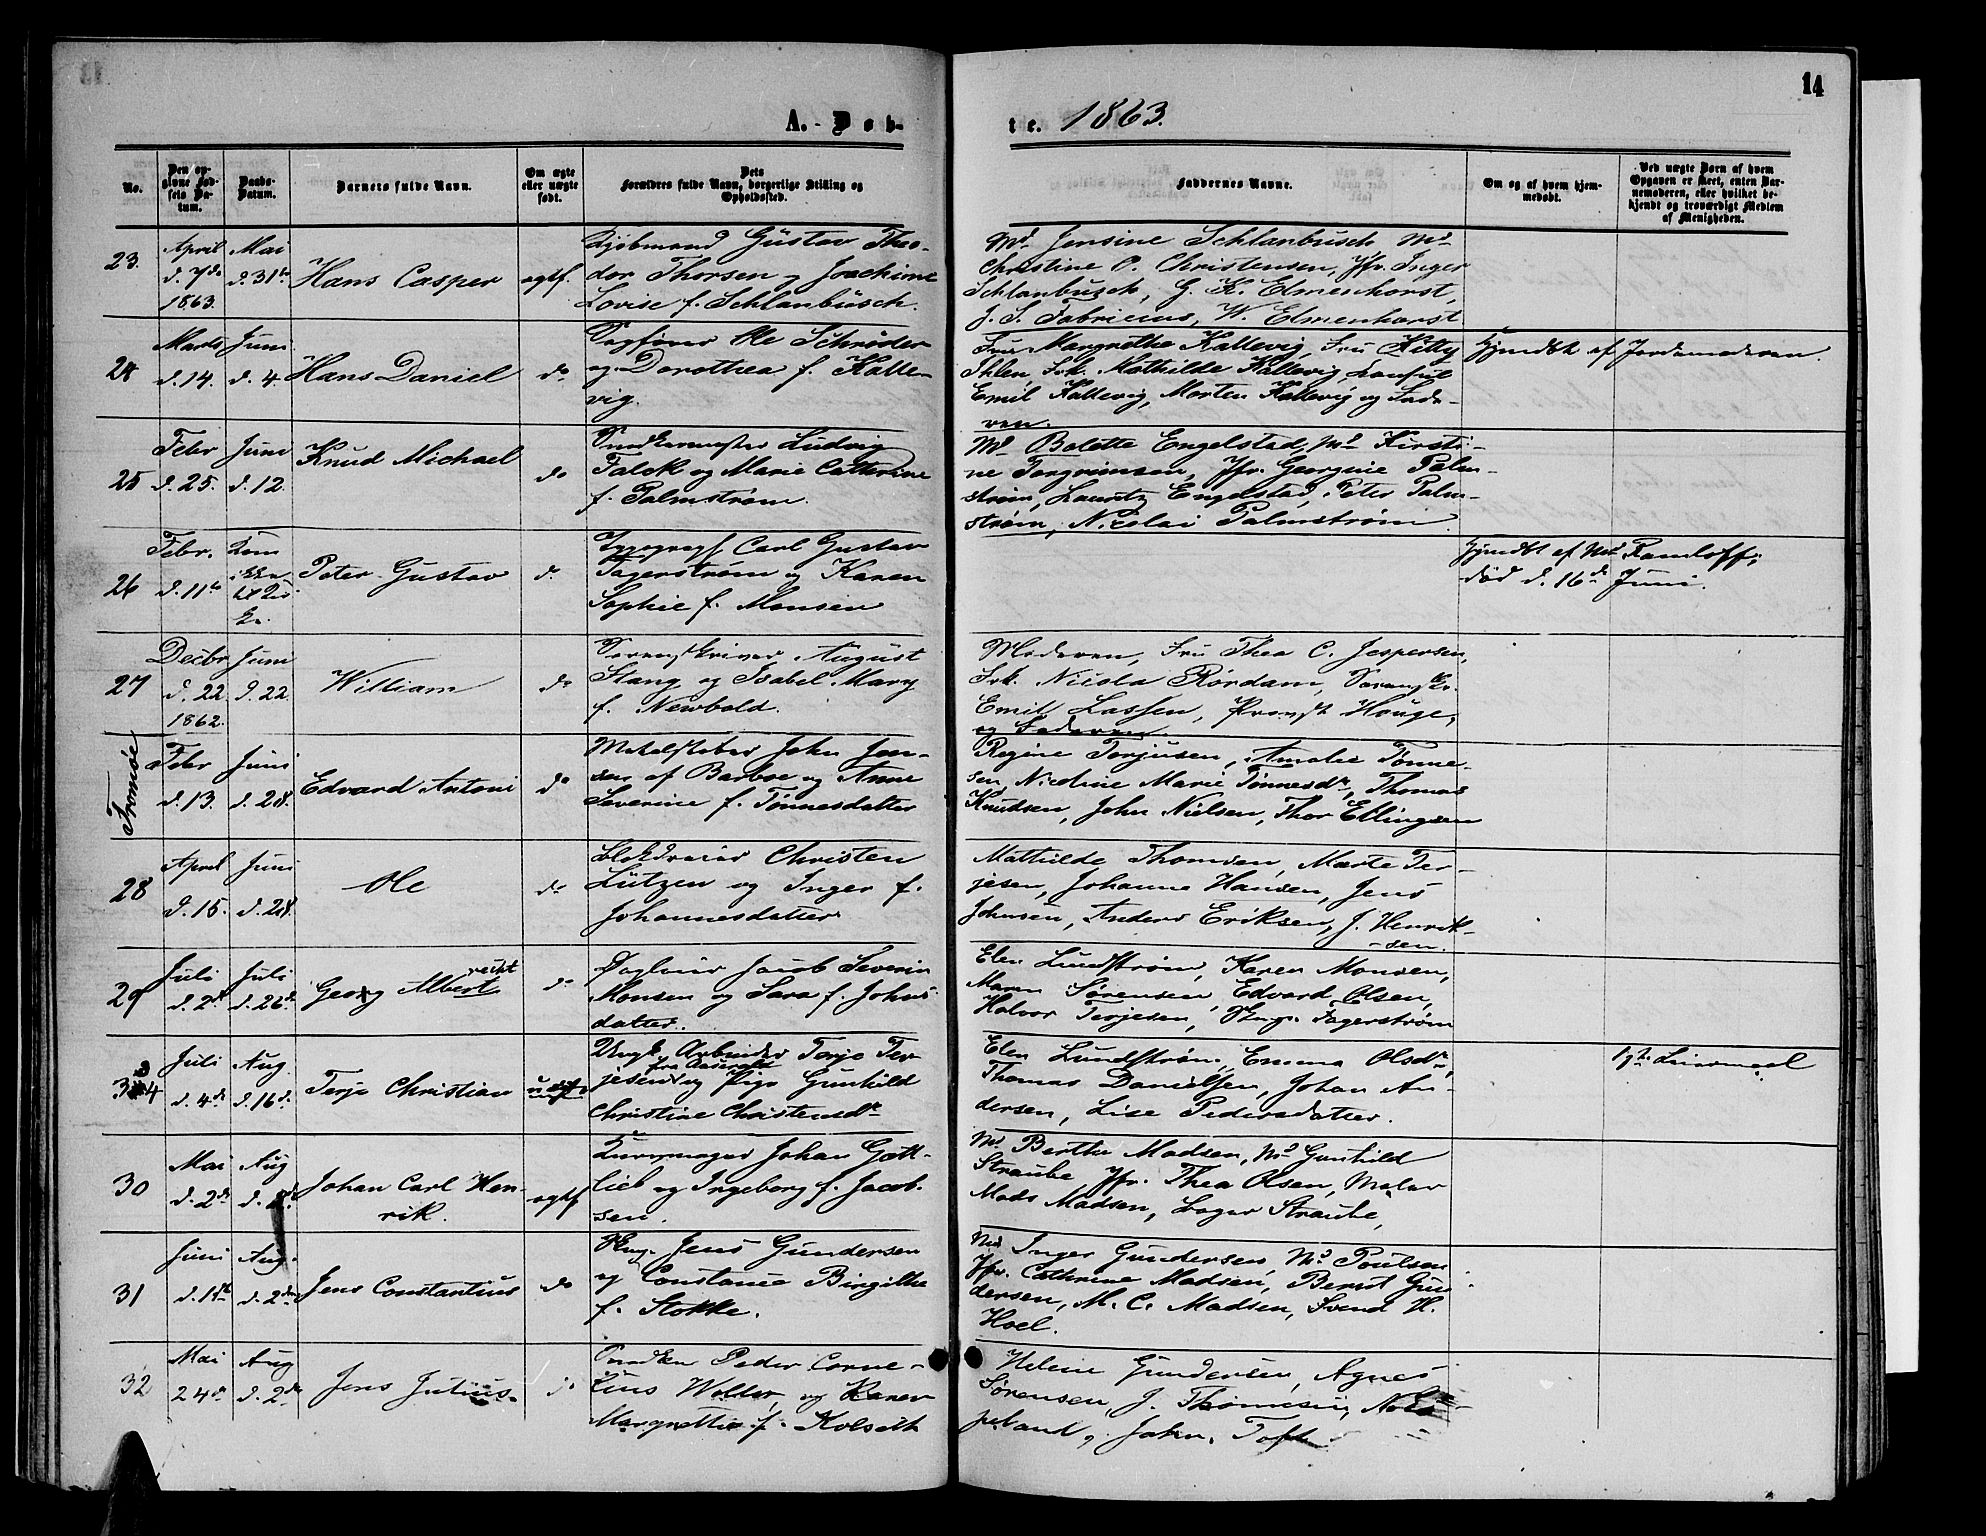 14
A. Døb-
te. 1863.
No.
Den opgivne Fødsels Datum.
Daabs-Datum.
Barnets fulde Navn.
Om ægte eller uægte født.
Dets Forældres fulde Navn, borgerlige Stilling og Opholdssted.
Faddernes Navne.
Om og af hvem hjemmedøbt.
Ved uægte Børn af hvem Opgaven er skeet, enten Barnemoderen, eller hvilket bekjendt og troværdigt Medlem af Menigheden.
23.
April
d. 7de
1863.
Mai
d. 31te
Hans Casper
ægtf.
Kjøbmand Gustav Theo-
dor Thorsen og Joachime
Lovise f. Schlanbusch.
Md. Jensine Schlanbusch, Md.
Christine P. Christensen, Jfr. Inger
Schlanbusch, G. K. Elmenhorst,
J. S. Fabricius, W. Elmenhorst
24
Marts
d. 14.
Juni
d. 4.
Hans Daniel
do
Sagfører Ole Schrøder
og Dorothea f. Kalle-
vig.
Fru Margrethe Kallevig, Fru Kitty
Ihlen, Frk. Mathilde Kallevig, Konsul
Emil Kallevig, Morten Kallevig og Fade-
ren.
Hjemdbt af Jordemoderen.
25
Febr
d. 25.
Juni
d. 12.
Knud Michael
do
Snedkermester Ludvig
Falck og Marie Cathrine
f. Palmstrøm.
Md Bolette Engelstad, Md Kirsti-
ne Torgrimsen, Jfr. Georgine Palm-
strøm, Lauritz Engelstad, Peter Palm-
strøm, Nicolai Palmstrøm
26
Febr.
d. 11te
Kom
ikke
Peter Gustav
d.
Typograf Carl Gustav
Fagerstrøm og Karen
Sophie f. Monsen
Hjemdbt af Md Ramloff;
død d. 16de Juni.
27
Decbr
d. 22
1862.
Juni
d. 22.
William
do
Sorenskriver August
Stang og Isabel Mary
f. Newbold.
Moderen, Fru Thea C. Jespersen,
Frk. Nicola Rørdam, Sorenskr.
Emil Lassen, Provst Houge,
og Faderen.
Tromøe
Febr
d. 13.
Juni
d. 28.
Edvard Antoni
do
John Jen-
sen af Barboe og Anne
Severine f. Tønnesdatter
Regine Torjusen, Amalie Tønne-
sen, Nicoline Marie Tønnesdr, Thomas
Knudsen, John Nielsen, Thor Ellingsen
28
April
d. 15.
Juni
d. 28.
Ole
do
Blokdreier Christen
Lützen og Inger f.
Johannesdatter
Mathilde Thomsen, Marte Ter-
jesen, Johanne Hansen, Jens
Johnsen, Anders Eriksen, J. Henrik-
-sen.
29
Juli
d. 2de
Juli
d. 26de
recht
Georg Albert
do
Daglner Jacob Severin
Monsen og Sara f. Johns-
datter.
Elen Lundstrøm, Karen Monsen,
Maren Sørensen, Edvard Olsen,
Halvor Terjesen, Fagerstrøm
34
Juli
d. 4de
Aug.
d. 16de
Terje Christian
Ungk. Arbeider Terje Ter-
jesen og Pige Gunhild
Christine Christensdr
Elen Lundstrøm, Emma Olsdr,
Thomas Danielsen, Johan An-
dersen, Lise Pedersdatter.
30
Mai
d. 2de
Aug
d. 2de
Johan Carl Hen-
rik.
ægtf
Kurvmager Johan Gott-
lieb og Ingeborg f. Jacob-
sen.
Md Berthe Madsen, Md Gunhild
Straube, Jfr. Thea Olsen, Maler
Mads Madsen, Bager Straube,
31
Juni
Aug.
d. 2den
Jens Constantius
do
Jens Gundersen
og Constance Birgithe
f. Stokke.
Md Inger Gundersen, Md Poulsen
Jfr. Cathrine Madsen, Bernt Gun-
dersen, M. C. Madsen, Svend H.
Hoel.
32
Mai
24de
Aug
d. 2de
Jens Julius.
do
Snedker Peder Corne-
lius Woller, og Karen
Margrethe f. Kolseth
Helene Gundersen, Agnes
Sørensen, J. Thommesen,
John Toft